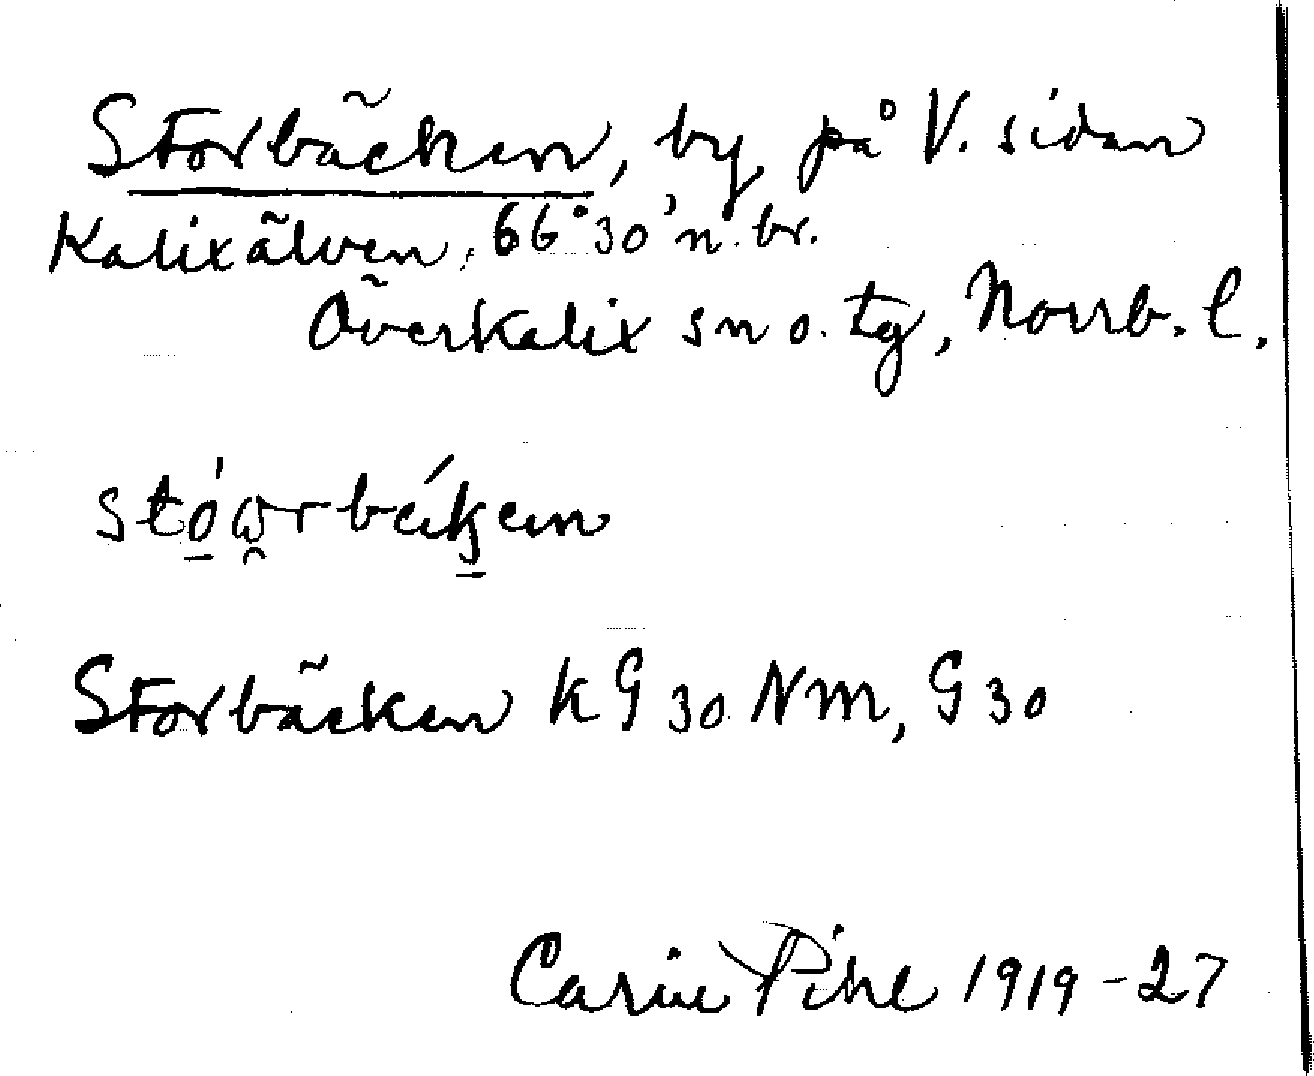 Storbäcken, by på V. sidan
Kalixälven, 66°30' n. br.
Överkalix sn o. tg, Norrb. l.
Storbäcken k G 30 Nm, G 30
Carin Pihl 1919-27